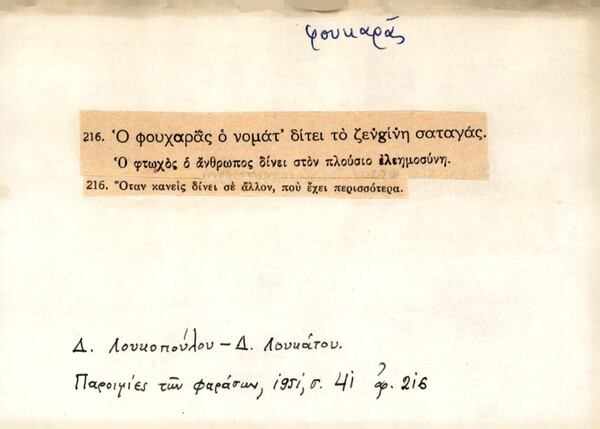 φουκαράς
216. Ὁ φουχαρᾶς ὁ νομάτ' δίτει τὸ ζενgίνη σαταγάς.
Ὁ φτωχὸς ὁ ἄνθρωπος δίνει στὸν πλούσιο ἐλεημοσύνη.
216. Ὅταν κανεὶς δίνει σὲ ἄλλον, ποὺ ἔχει περισσότερα.
Δ. Λουκοπούλου – Δ. Λουκάτου.
Παροιμίες τῶν Φαράσων, 1951, σ. 41 ἀρ. 216